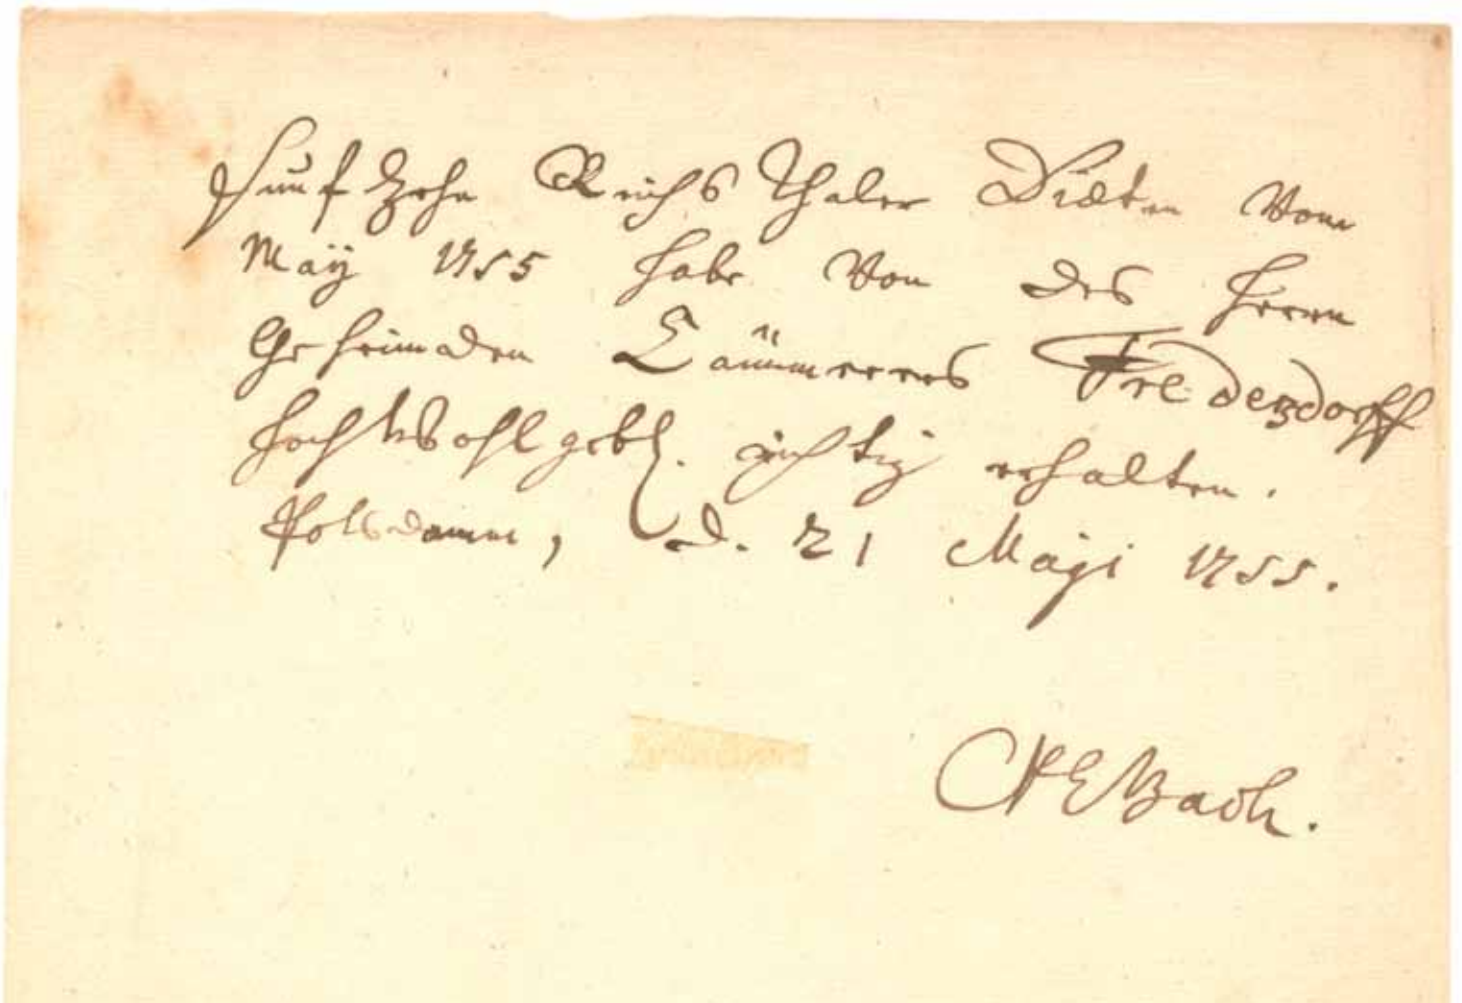 Funfzehn Reichs Thaler Diäten vom
May 1755 habe von des Herrn
Geheimden Cämmerers Fredersdorff
HochWohlgebl. richtig erhalten.
Potsdamm, d. 21 Maji 1755.
CPEBach.